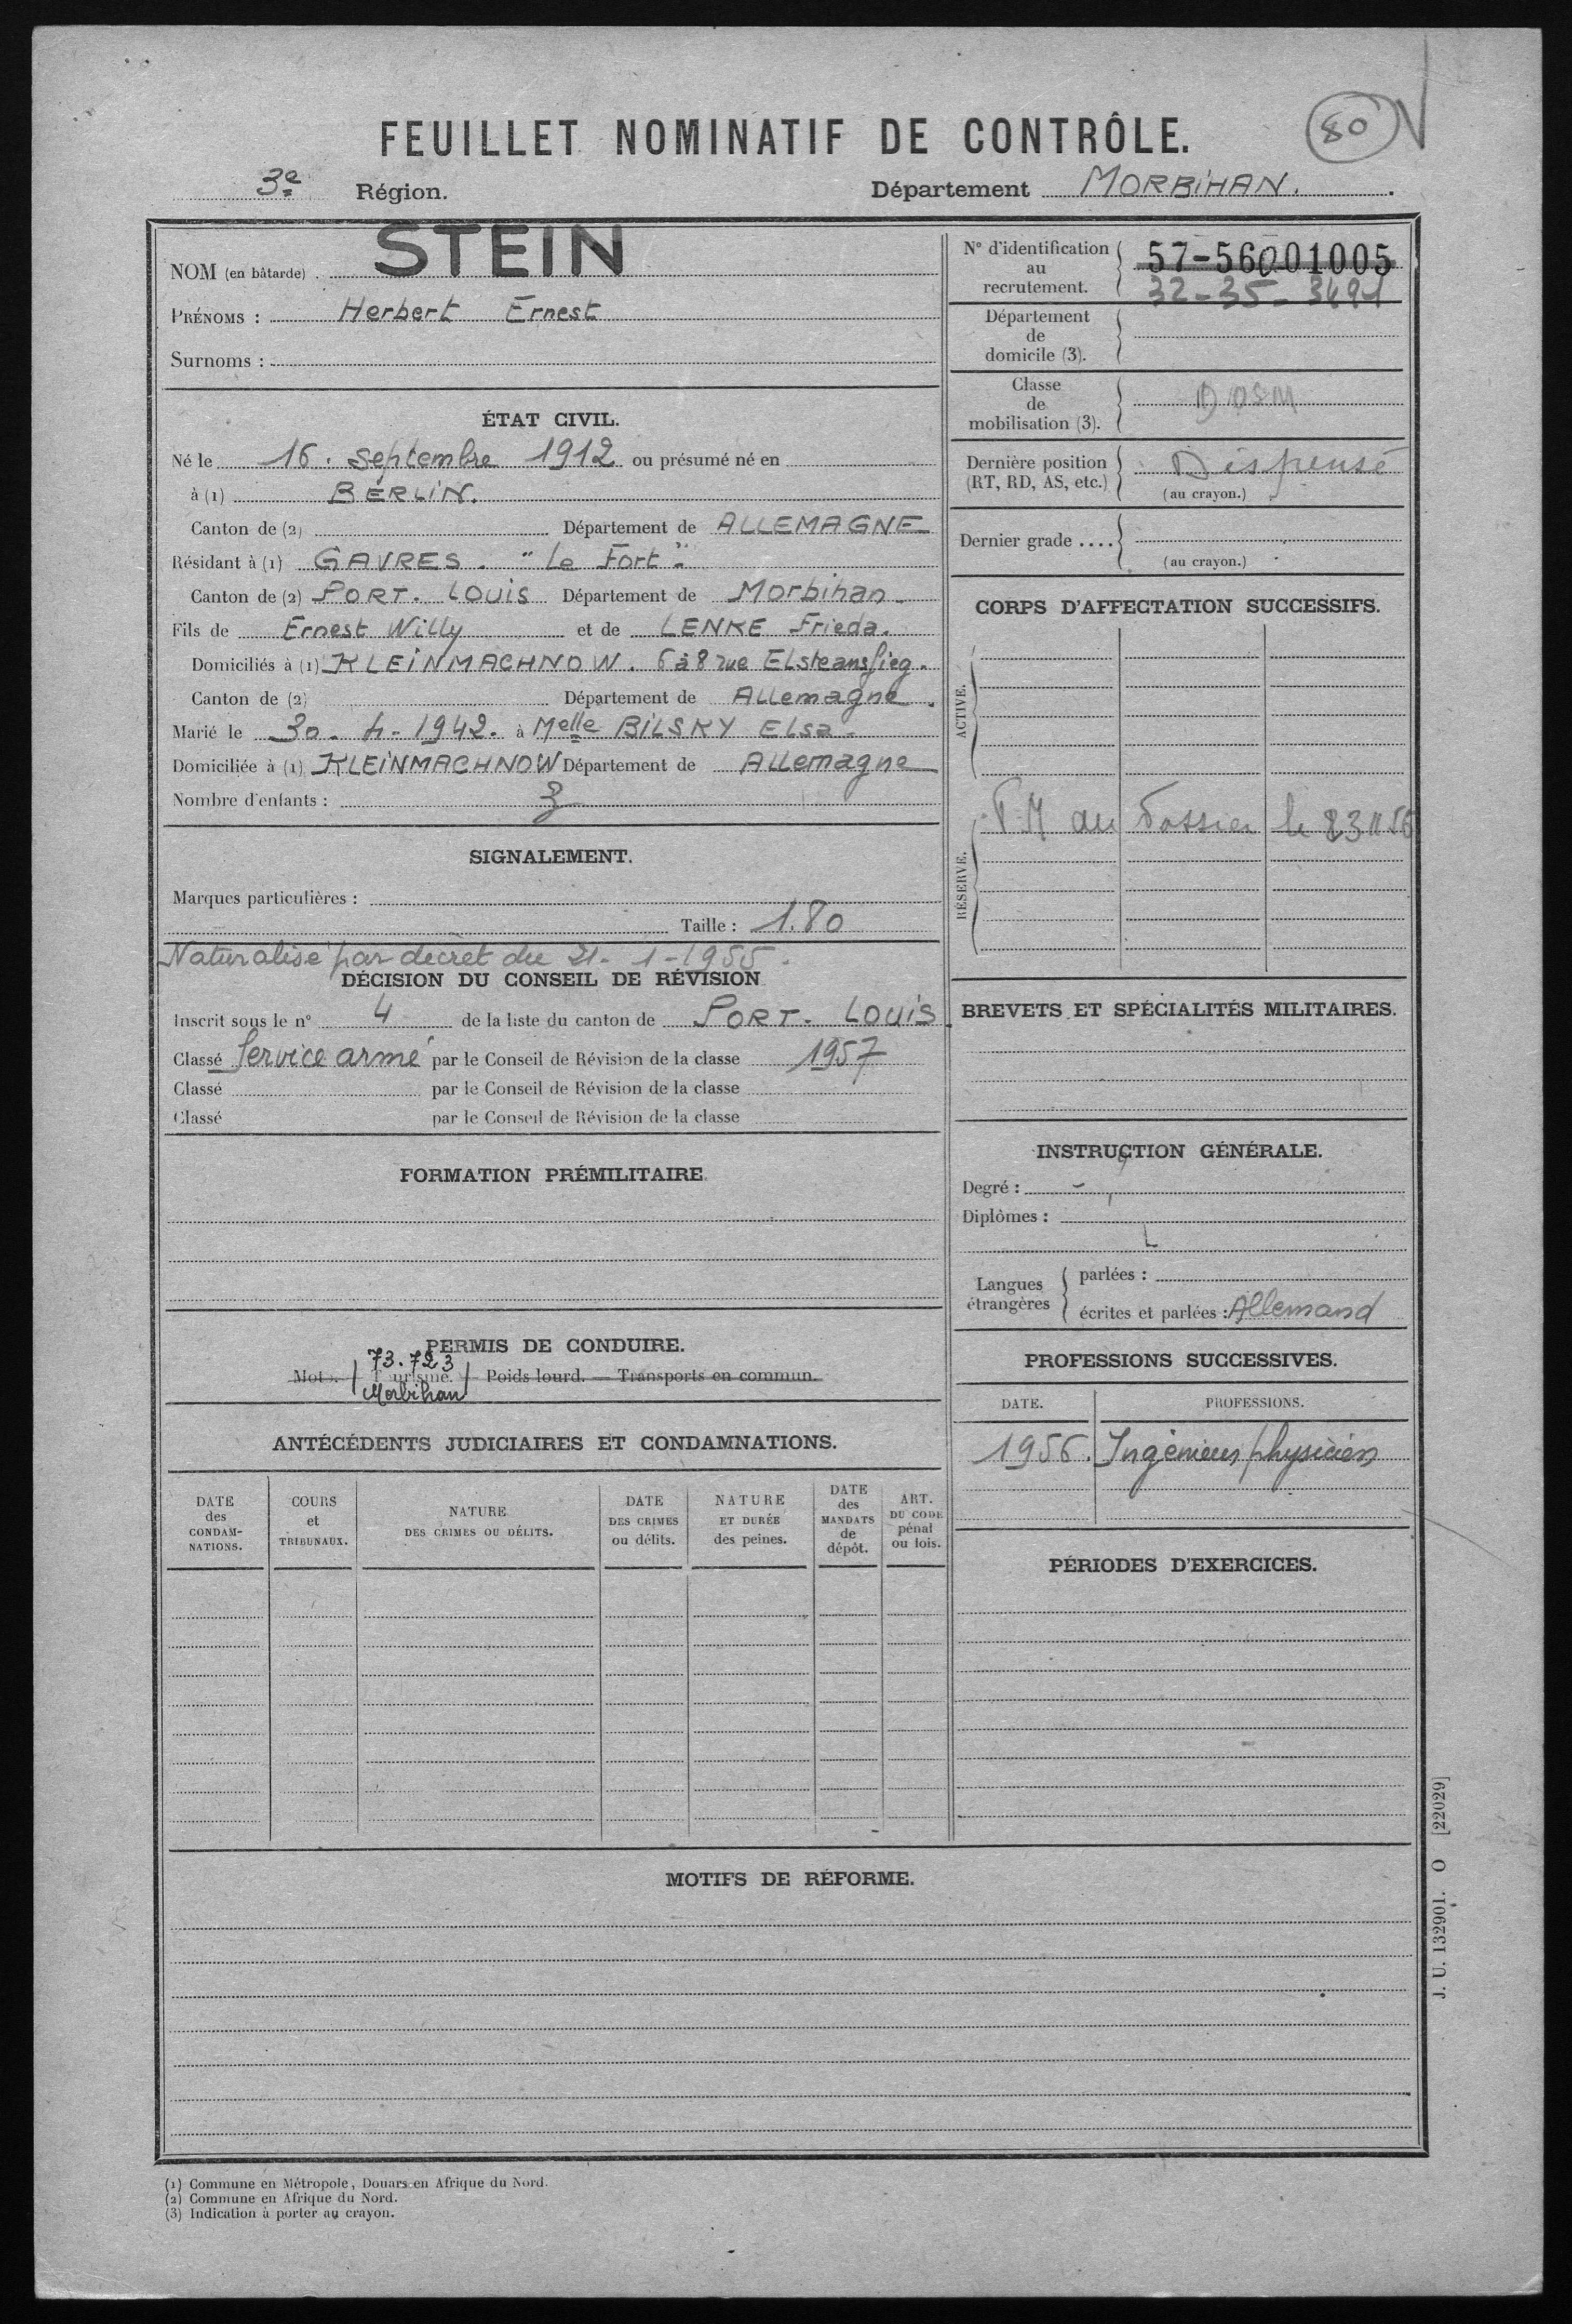 80
FEUILLET NOMINATIF DE CONTRÔLE.
3e Région. Département MORBIHAN.
NOM (en bâtarde) . STEIN
PRÉNOMS : Herbert Ernest
Surnoms :
ÉTAT CIVIL.
Né le 16. Septembre 1912 ou présumé né en
à (1) BERLIN.
Canton de (2) Département de ALLEMAGNE
Résidant à (1) GAVRES. "Le Fort".
Canton de (2) PORT. LOUIS Département de Morbihan
Fils de Ernest Willy et de LENKE Frieda.
Domiciliés à (1) KLEINMACHNOW. 6 à 8 rue
Canton de (2) Département de Allemagne.
Marié le 30. 4-1942. à Melle BILSKY Elsa.
Domiciliée à (1) KLEINMACHNOW Département de Allemagne
Nombre d'enfants : 3
SIGNALEMENT.
Marques particulières :
Taille : 1.80
Naturalisé par décret du 21-1-1955.
DÉCISION DU CONSEIL DE RÉVISION
Inscrit sous le n° 4 de la liste du canton de PORT. LOUIS.
Classé Service armé par le Conseil de Révision de la classe 1957
Classé par le Conseil de Révision de la classe
Classé par le Conseil de Révision de la classe
FORMATION PRÉMILITAIRE.
PERMIS DE CONDUIRE.
73.723
Moto. — Tourisme. — Poids lourd. — Transports en commun.
Morbihan
ANTÉCÉDENTS JUDICIAIRES ET CONDAMNATIONS.
DATE des CONDAMNATIONS.
COURS et TRIBUNAUX.
NATURE DES CRIMES OU DÉLITS.
DATE DES CRIMES ou délits.
NATURE ET DURÉE des peines.
DATE des MANDATS de dépôt.
ART. DU CODE pénal ou lois.
N° d'identification au recrutement. 57-56001005
32-35-3491
Département de domicile (3).
Classe de mobilisation (3).
Dernière position (RT, RD, AS, etc.) Dispensé
(au crayon.)
Dernier grade ....
(au crayon.)
CORPS D'AFFECTATION SUCCESSIFS.
ACTIVE.
RÉSERVE.
au Dossier le
BREVETS ET SPÉCIALITÉS MILITAIRES.
INSTRUCTION GÉNÉRALE.
Degré : -
Diplômes :
Langues étrangères
parlées :
écrites et parlées : Allemand
PROFESSIONS SUCCESSIVES.
DATE. PROFESSIONS.
1956. Ingénieur physicien
PÉRIODES D'EXERCICES.
MOTIFS DE RÉFORME.
J. U. 132901. O [22029]
(1) Commune en Métropole, Douars en Afrique du Nord.
(2) Commune en Afrique du Nord.
(3) Indication à porter au crayon.